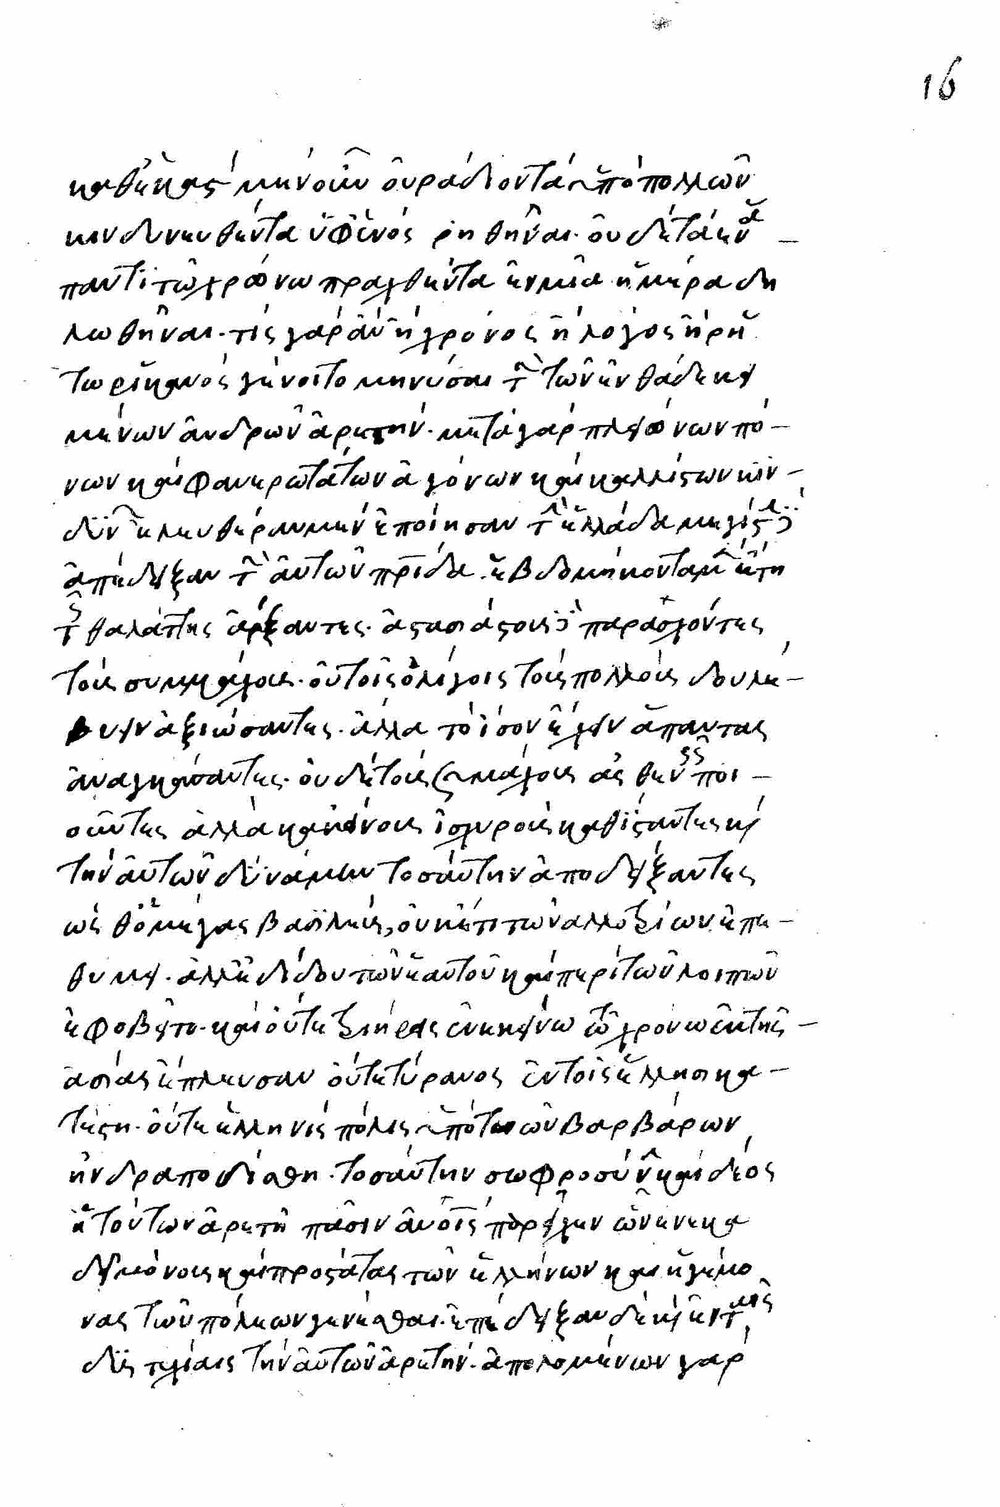 καθ' ἕκαστον μὲν οὖν οὐ ράδιον τὰ ὑπὸ πολλῶν
κινδυνευθέντα ὑφ' ἑνὸς ρηθῆναι. οὐδὲ τὰ ἐν ἅ-
παντι τῶ χρόνω πραχθέντα ἐν μιᾶ ἡμέρα δη
λωθῆναι. τίς γὰρ ἂν ἢ χρόνος ἢ λόγος ἢ ρή
τωρ ἱκανὸς γένοιτο μηνύσαι τὴν τῶν ἐνθάδε κει
μένων ἀνδρῶν ἀρετήν. μετὰ γὰρ πλειόνων πό-
νων καὶ φανερωτάτων ἀγώνων καὶ καλλίστων κιν-
δύνων ἐλευθέραν μὲν ἐποίησαν τὴν ἑλλάδα μεγίστην δὲ
ἀπέδειξαν τὴν αὐτῶν πατρίδα. ἑβδομήκοντα μὲν ἔτη
τῆς θαλάττης ἄρξαντες. ἀστασιάστους δὲ παρασχόντες
τοὺς συμμάχους. οὐ τοῖς ὀλίγοις τοὺς πολλοὺς δουλε-
ύειν ἀξιώσαντες. ἀλλὰ τὸ ἴσον ἔχειν ἅπαντας
ἀναγκάσαντες. οὐδὲ τοὺς συμμάχους ἀσθενεῖς ποι-
οῦντες ἀλλὰ κἀκείνους ἰσχυροὺς καθιστάντες καὶ
τὴν αὐτῶν δύναμιν τοσαύτην ἀποδείξαντες
ὡς θ' ὁ μέγας βασιλεὺς, οὐκέτι τῶν ἀλλοτρίων ἐπε-
θύμει. ἀλλ' ἐδίδου τῶν ἑαυτοῦ καὶ περὶ τῶν λοιπῶν
ἐφοβεῖτο. καὶ οὔτε τριήρεις ἐν ἐκείνω τῶ χρόνω ἐκ τῆς
ἀσίας ἔπλευσαν οὔτε τύρανος ἐν τοῖς ἕλλησι κα-
τέστη. οὔτε ἑλληνὶς πόλις ὑπὸ τῶν βαρβάρων
ἠνδραποδίσθη. τοσαύτην σωφροσύνην καὶ δέος
ἡ τούτων ἀρετὴ πᾶσιν ἀνοις παρεῖχεν ὧν ἕνεκα
δεῖ μόνους καὶ προστάτας τῶν ἑλλήνων καὶ ἡγεμό
νας τῶν πόλεων γενέσθαι. ἐπέδειξαν δὲ καὶ ἐν ταῖς
δυστυχίαις τὴν αὐτῶν ἀρετήν. ἀπολομένων γὰρ
16